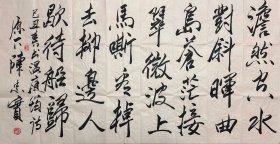 澹然空水
對斜暉曲
島蒼茫接
翠微波上
馬嘶看棹
去柳邊人
歇待船歸
己丑春溫庭筠詩
陳